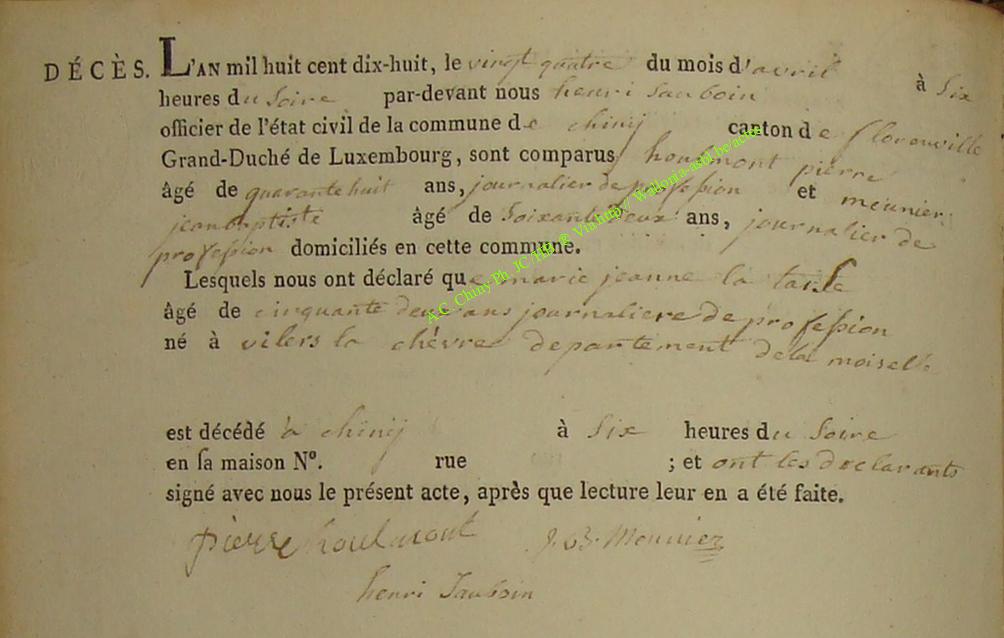 DÉCÈS. L'AN mil huit cent dix-huit, le vingt quatre du mois d'avril à Six
heures du Soire par-devant nous henri Sauboin
officier de l'état civil de la commune de chinij canton de florenville
Grand-Duché de Luxembourg, sont comparus houlmont pierre
âgé de quarante huit ans, journalier de profession et meunier
jeanbaptiste âgé de Soixante deux ans, journalier de
profession domiciliés en cette commune.
Lesquels nous ont déclaré que marie jeanne la
âgé de cinquante deux ans journaliere de profession
né à vilers la chèvre departement de la moiselle
est décédé à chinij à Six heures du Soire
en sa maison N°. rue ; et ont les declarants
signé avec nous le présent acte, après que lecture leur en a été faite.
pierre houlmont J. B. Meunier
henri Sauboin
A.C. Chiny Ph. JC/HB ® Viahuta / Wallonia-asbl.be/actes